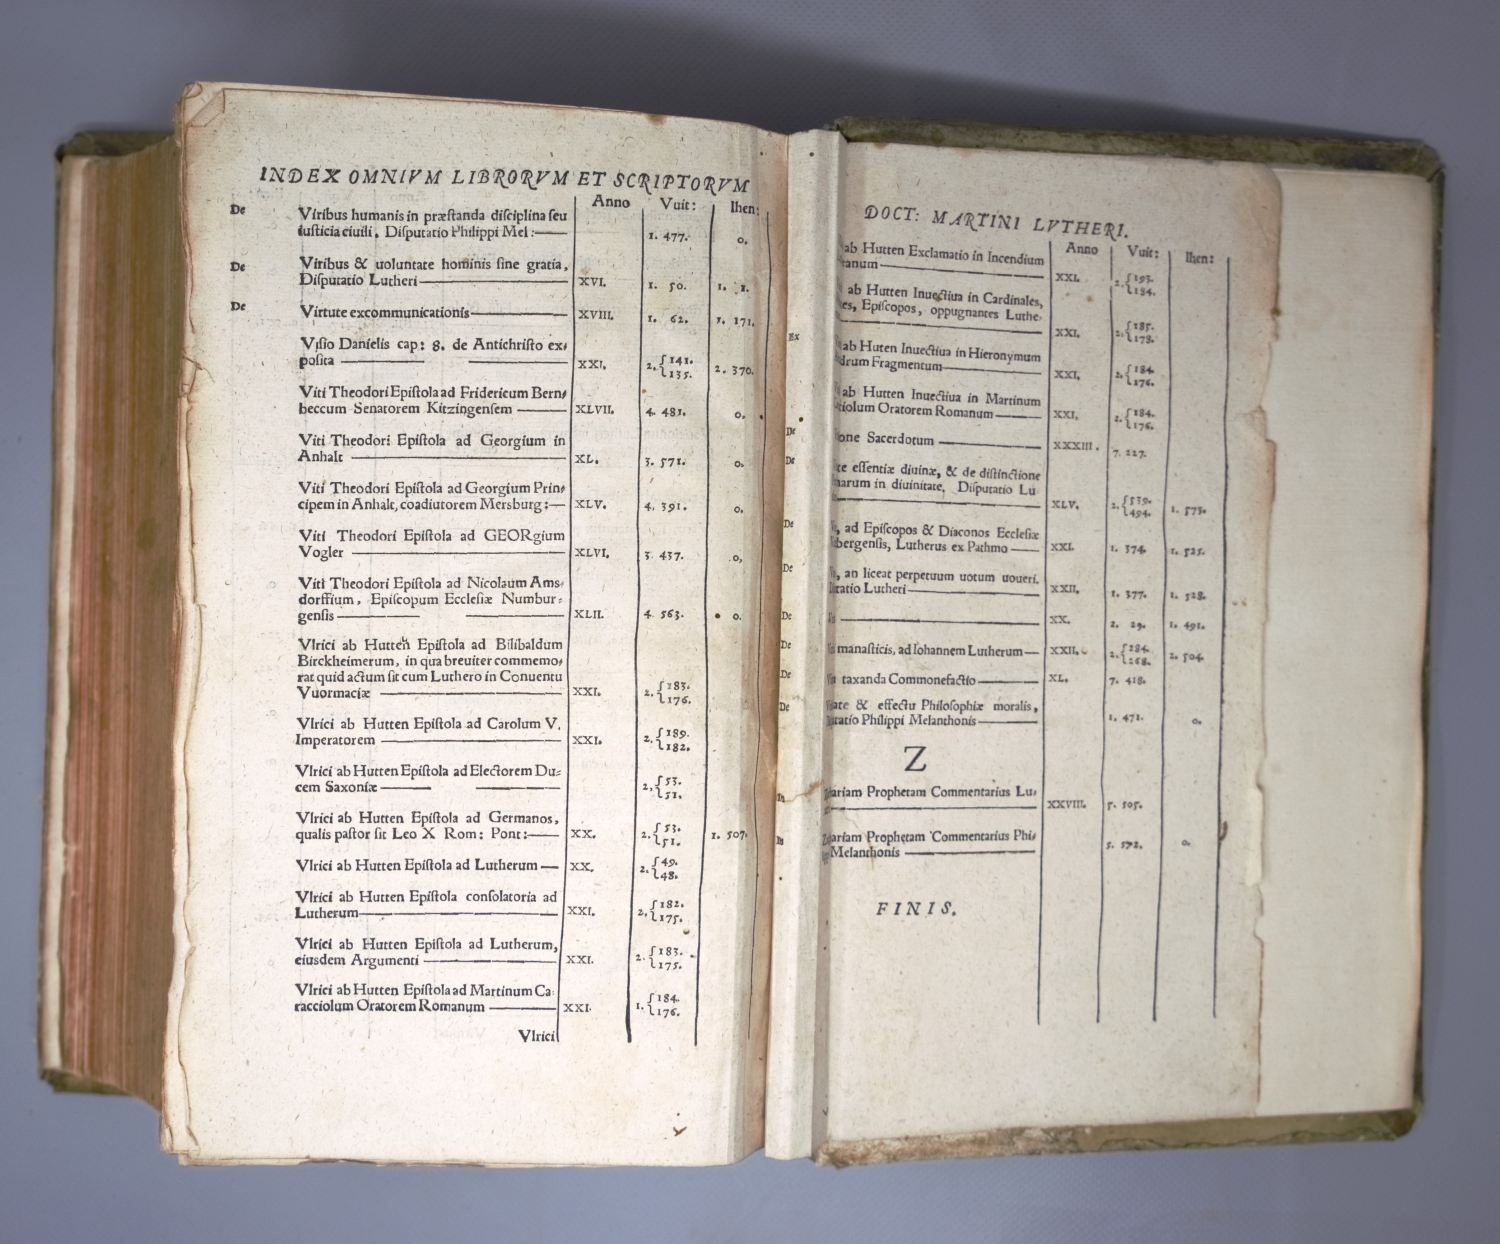 INDEX OMNIVM LIBRORVM ET SCRIPTORVM
Anno Vuit: Ihen:
De Viribus humanis in præstanda disciplina seu
iusticia ciuili. Disputatio Philippi Mel: 1. 477. 0.
De Viribus & uoluntate hominis sine gratia,
Disputatio Lutheri XVI. 1. 50. 1. 1.
De Virtute excommunicationis XVIII. 1. 62. 1. 171.
Visio Danielis cap: 8. de Antichristo ex=
posita XXI. 2. {141. 135. 2. 370.
Viti Theodori Epistola ad Fridericum Bern=
beccum Senatorem Kitzingensem XLVII. 4. 481. 0.
Viti Theodori Epistola ad Georgium in
Anhalt XL. 3. 571. 0.
Viti Theodori Epistola ad Georgium Prin=
cipem in Anhalt, coadiutorem Mersburg: XLV. 4. 391. 0.
Viti Theodori Epistola ad GEORgium
Vogler XLVI. 3. 437. 0.
Viti Theodori Epistola ad Nicolaum Ams=
dorffium, Episcopum Ecclesiæ Numbur=
gensis XLII. 4. 563. 0.
Vlrici ab Hutten Epistola ad Bilibaldum
Birckheimerum, in qua breuiter commemo=
rat quid actum sit cum Luthero in Conuentu
Vuormaciæ XXI. 2. {183. 176.
Vlrici ab Hutten Epistola ad Carolum V.
Imperatorem XXI. 2. {189. 182.
Vlrici ab Hutten Epistola ad Electorem Du=
cem Saxoniæ 2. {53. 51.
Vlrici ab Hutten Epistola ad Germanos,
qualis pastor sit Leo X Rom: Pont: XX. 2. {53. 51. 1. 507.
Vlrici ab Hutten Epistola ad Lutherum XX. 2. {49. 48.
Vlrici ab Hutten Epistola consolatoria ad
Lutherum XXI. 2. {182. 175.
Vlrici ab Hutten Epistola ad Lutherum,
eiusdem Argumenti XXI. 2. {183. 175.
Vlrici ab Hutten Epistola ad Martinum Ca=
racciolum Oratorem Romanum XXI. 1. {184. 176.
Vlrici
DOCT: MARTINI LVTHERI.
Anno Vuit: Ihen:
ab Hutten Exclamatio in Incendium
XXI. 2. {193. 184.
ab Hutten Inuectiua in Cardinales,
Episcopos, oppugnantes Luthe=
XXI. 2. {185. 178.
Ex
ab Huten Inuectiua in Hieronymum
Fragmentum XXI. 2. {184. 176.
ab Hutten Inuectiua in Martinum
Oratorem Romanum XXI. 2. {184. 176.
De
Sacerdotum XXXIII. 7. 227.
De
essentiæ diuinæ, & de distinctione
in diuinitate, Disputatio Lu
XLV. 2. {539. 494. 1. 573.
De
ad Episcopos & Diaconos Ecclesiæ
Lutherus ex Pathmo XXI. 1. 374. 1. 525.
De
an liceat perpetuum uotum uoueri.
Lutheri XXII. 1. 377. 1. 528.
De
XX. 2. 29. 1. 491.
De
manasticis, ad Iohannem Lutherum XXII. 2. {284. 268. 2. 504.
De
taxanda Commonefactio XL. 7. 418.
De
& effectu Philosophiæ moralis,
Philippi Melanthonis 1. 471. 0.
Z
In
Prophetam Commentarius Lu=
XXVIII. 5. 505.
Prophetam Commentarius Phi=
Melanthonis 5. 572. 0.
FINIS.